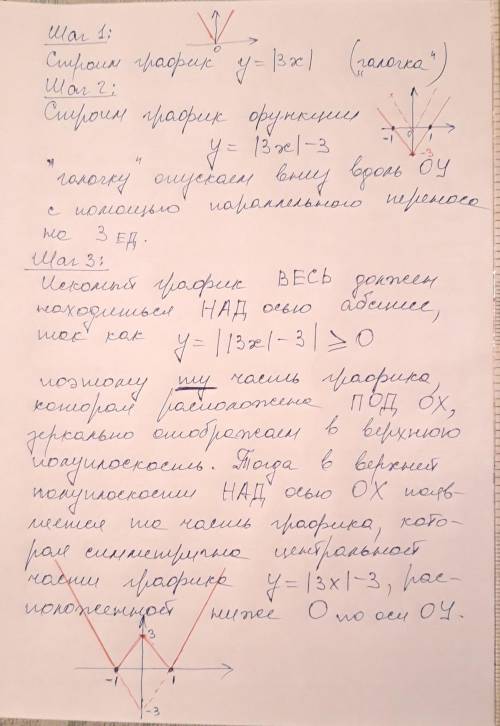 Шаг 1:
0
Строим график y = |3x| („галочка“)
Шаг 2:
Строим график функции
y = |3x| - 3
-1 0 1
-3
"галочку" опускаем вниз вдоль ОУ
с помощью параллельного переноса
на 3 ед.
Шаг 3:
Искомый график ВЕСЬ должен
находиться НАД осью абсцисс,
так как y = ||3x| - 3| ≥ 0
поэтому ту часть графика,
которая расположена ПОД ОХ,
зеркально отображаем в верхнюю
полуплоскость. Тогда в верхней
полуплоскости НАД осью ОХ появ-
ляется та часть графика, кото-
рая симметрична центральной
части графика y = |3x| - 3, рас-
положенной ниже 0 по оси ОУ.
3
-1 1
-3